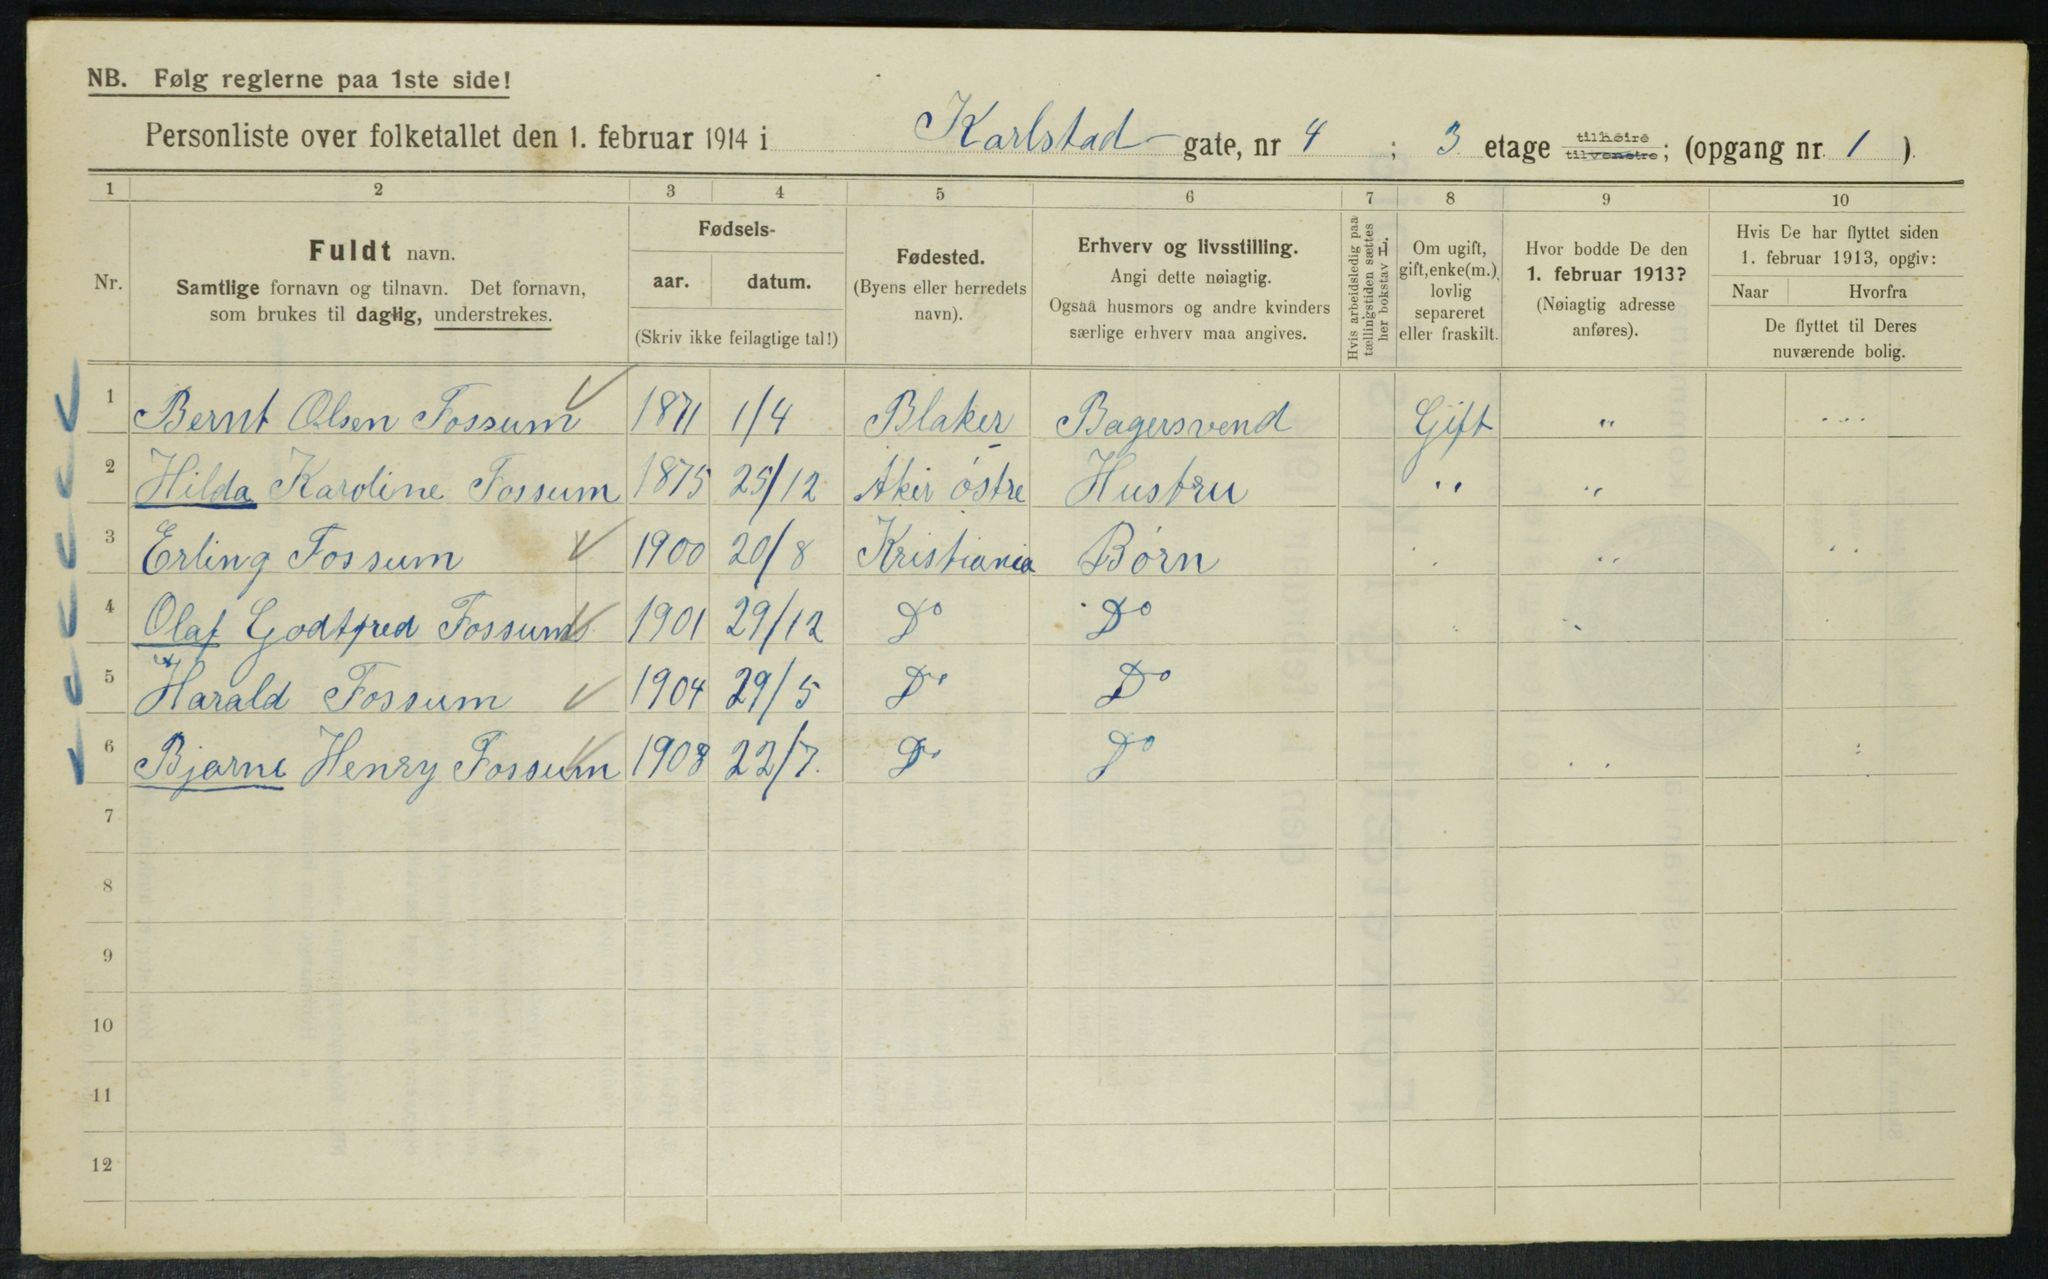 NB. Følg reglerne paa 1ste side!
Personliste over folketallet den 1. februar 1914 i Karlstad gate, nr 4 ; 3 etage tilhøire tilvenstre; (opgang nr. 1 ).
1 2 3 4 5 6 7 8 9 10
Nr.
Fuldt navn.
Samtlige fornavn og tilnavn. Det fornavn,
som brukes til daglig, understrekes.
Fødsels-
aar. datum.
(Skriv ikke feilagtige tal!)
Fødested.
(Byens eller herredets
navn).
Erhverv og livsstilling.
Angi dette nøiagtig.
Ogsaa husmors og andre kvinders
særlige erhverv maa angives.
Hvis arbeidsledig paa
tællingstiden sættes
her bokstav L.
Om ugift,
gift, enke(m.),
lovlig
separeret
eller fraskilt.
Hvor bodde De den
1. februar 1913?
(Nøiagtig adresse
anføres).
Hvis De har flyttet siden
1. februar 1913, opgiv:
Naar Hvorfra
De flyttet til Deres
nuværende bolig.
1 Bernt Olsen Fossum 1871 1/4 Blaker Bagersvend Gift "
2 Hilda Karoline Fossum 1875 25/12 Aker østre Hustru " "
3 Erling Fossum 1900 20/8 Kristiania Børn "
4 Olaf Godtfred Fossum 1901 29/12 Do Do "
5 Harald Fossum 1904 29/5 Do Do
6 Bjarne Henry Fossum 1908 22/7. Do Do "
7
8
9
10
11
12